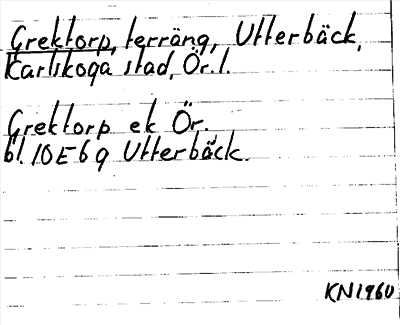 Grektorp, terräng, Utterbäck,
Karlskoga stad, Ör. l.
Grektorp ek Ör.
bl. 10E6g Utterbäck.
KN1960